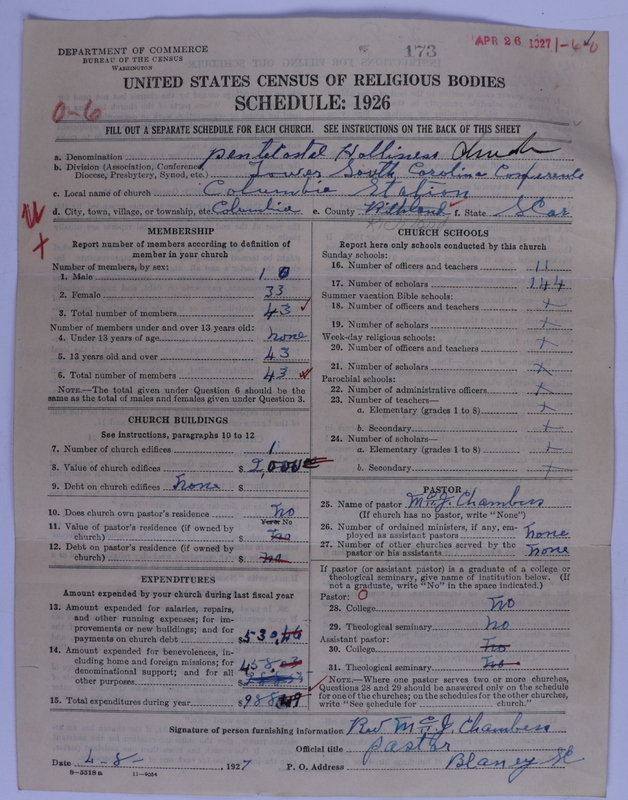 DEPARTMENT OF COMMERCE
BUREAU OF THE CENSUS
WASHINGTON
173
APR 26 1927
1-6-0
UNITED STATES CENSUS OF RELIGIOUS BODIES
SCHEDULE: 1926
0-6
FILL OUT A SEPARATE SCHEDULE FOR EACH CHURCH. SEE INSTRUCTIONS ON THE BACK OF THIS SHEET
a. Denomination Pentecostal Holliness Church
b. Division (Association, Conference, Diocese, Presbytery, Synod, etc.) Lower South Carolina Conference
c. Local name of church Columbia Station
d. City, town, village, or township, etc. Columbia e. County Rithland f. State S Car
Richland
MEMBERSHIP
Report number of members according to definition of
member in your church
Number of members, by sex:
1. Male 10
2. Female 33
3. Total number of members 43
Number of members under and over 13 years old:
4. Under 13 years of age none
5. 13 years old and over 43
6. Total number of members 43
NOTE.—The total given under Question 6 should be the
same as the total of males and females given under Question 3.
CHURCH BUILDINGS
See instructions, paragraphs 10 to 12
7. Number of church edifices 1
8. Value of church edifices $ 2,000
9. Debt on church edifices none $
10. Does church own pastor's residence No
Yes or No
11. Value of pastor's residence (if owned by
church) $ No
12. Debt on pastor's residence (if owned by
church) $ no
EXPENDITURES
Amount expended by your church during last fiscal year
13. Amount expended for salaries, repairs,
and other running expenses; for im-
provements or new buildings; and for
payments on church debt $530.
14. Amount expended for benevolences, in-
cluding home and foreign missions; for
denominational support; and for all
other purposes $ 458.
15. Total expenditures during year $988
CHURCH SCHOOLS
Report here only schools conducted by this church
Sunday schools:
16. Number of officers and teachers 11
17. Number of scholars 144
Summer vacation Bible schools:
18. Number of officers and teachers x
19. Number of scholars x
Week-day religious schools:
20. Number of officers and teachers x
21. Number of scholars x
Parochial schools:
22. Number of administrative officers x
23. Number of teachers—
a. Elementary (grades 1 to 8) x
b. Secondary x
24. Number of scholars—
a. Elementary (grades 1 to 8) x
b. Secondary x
PASTOR
25. Name of pastor McJ. Chambess
(If church has no pastor, write "None")
26. Number of ordained ministers, if any, em-
ployed as assistant pastors none
27. Number of other churches served by the
pastor or his assistants none
If pastor (or assistant pastor) is a graduate of a college or
theological seminary, give name of institution below. (If
not a graduate, write "No" in the space indicated.)
Pastor: 0
28. College No
29. Theological seminary No
Assistant pastor:
30. College No
31. Theological seminary No
NOTE.—Where one pastor serves two or more churches,
Questions 28 and 29 should be answered only on the schedule
for one of the churches; on the schedules for the other churches,
write "See schedule for church."
Signature of person furnishing information Rev McJ. Chambess
Official title Pastor
Date 4-8- , 1927 P. O. Address Blaney SC
8—5518a 11—9684